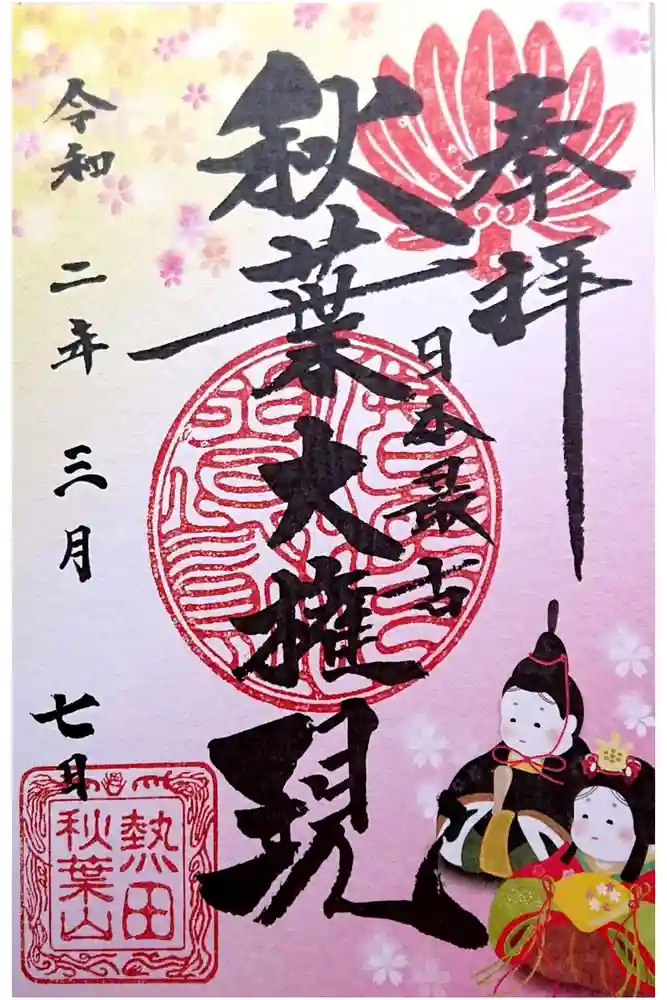 奉拝
日本最古
秋葉大権現
令和二年三月七日
熱田
秋葉山